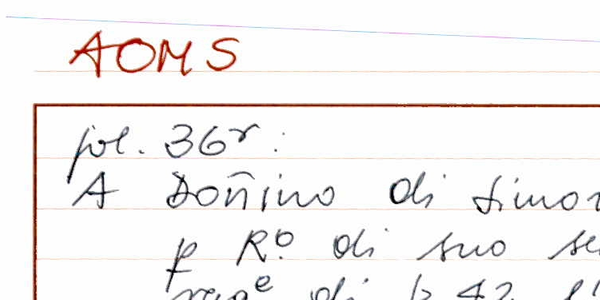 AOMS
fol. 36r:
A Doñino di Simo
p Rº di suo se
di 42